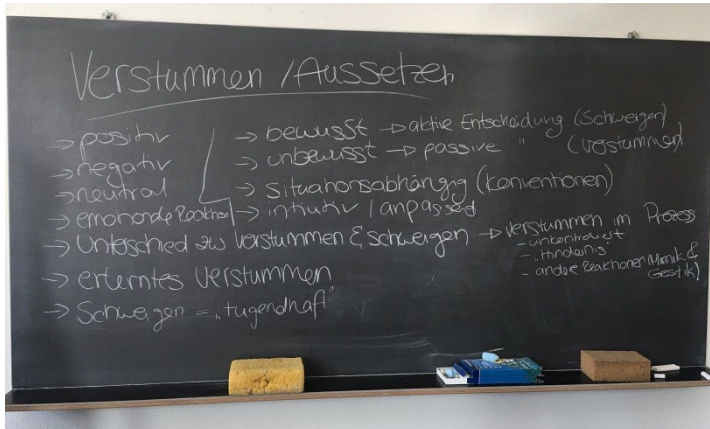 Verstummen / Aussetzen
→ positiv
→ negativ
→ neutral
→ emotionale Reaktion
→ bewusst → aktive Entscheidung (Schweigen)
→ unbewusst → passive " (Verstummen)
→ situationsabhängig (Konventionen)
→ intuitiv / anpassed
→ Unterschied zw Verstummen & Schweigen → Verstummen im Prozess
- unkontrolliert
- "Hindernis
- andere Reaktionen Mimik &
Gestik!
→ erlerntes Verstummen
→ Schweigen = „tugendhaft"